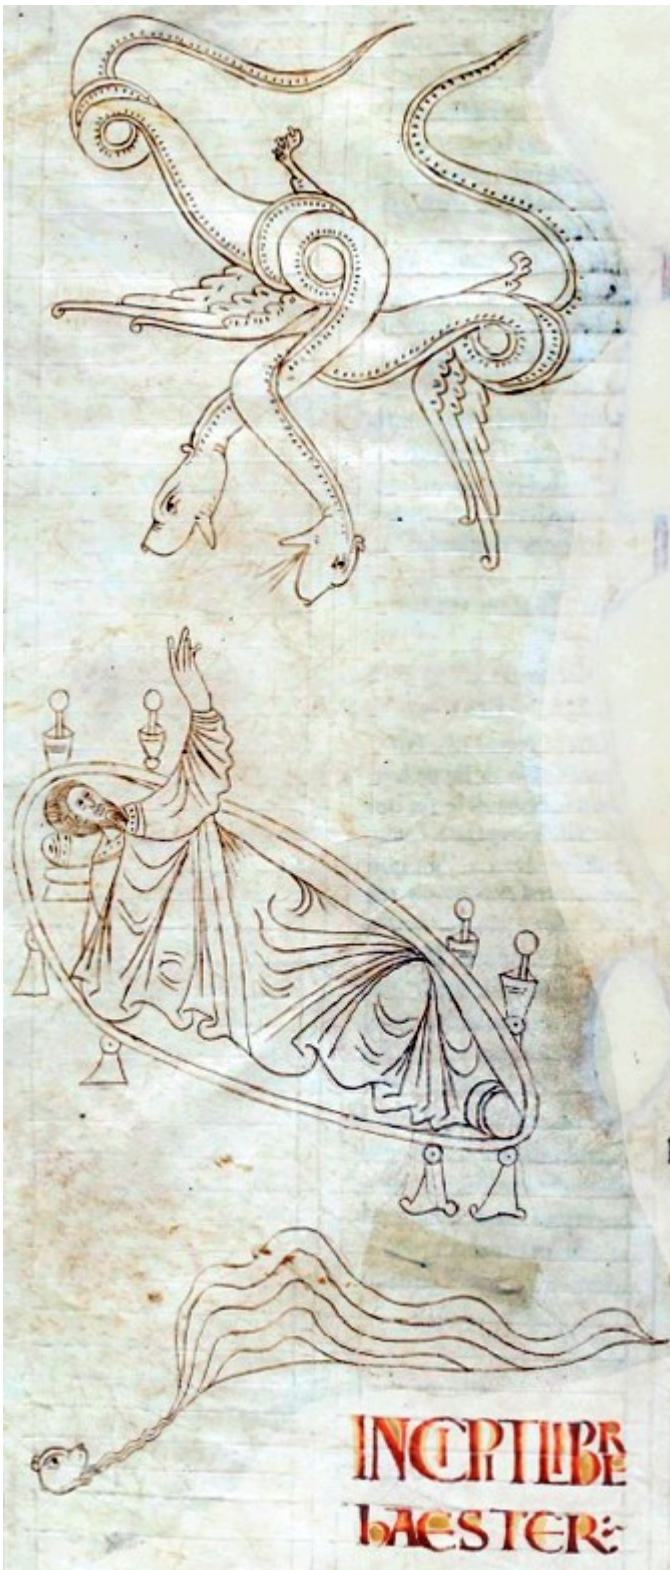 INCIPIT LIBER
hAESTER:~